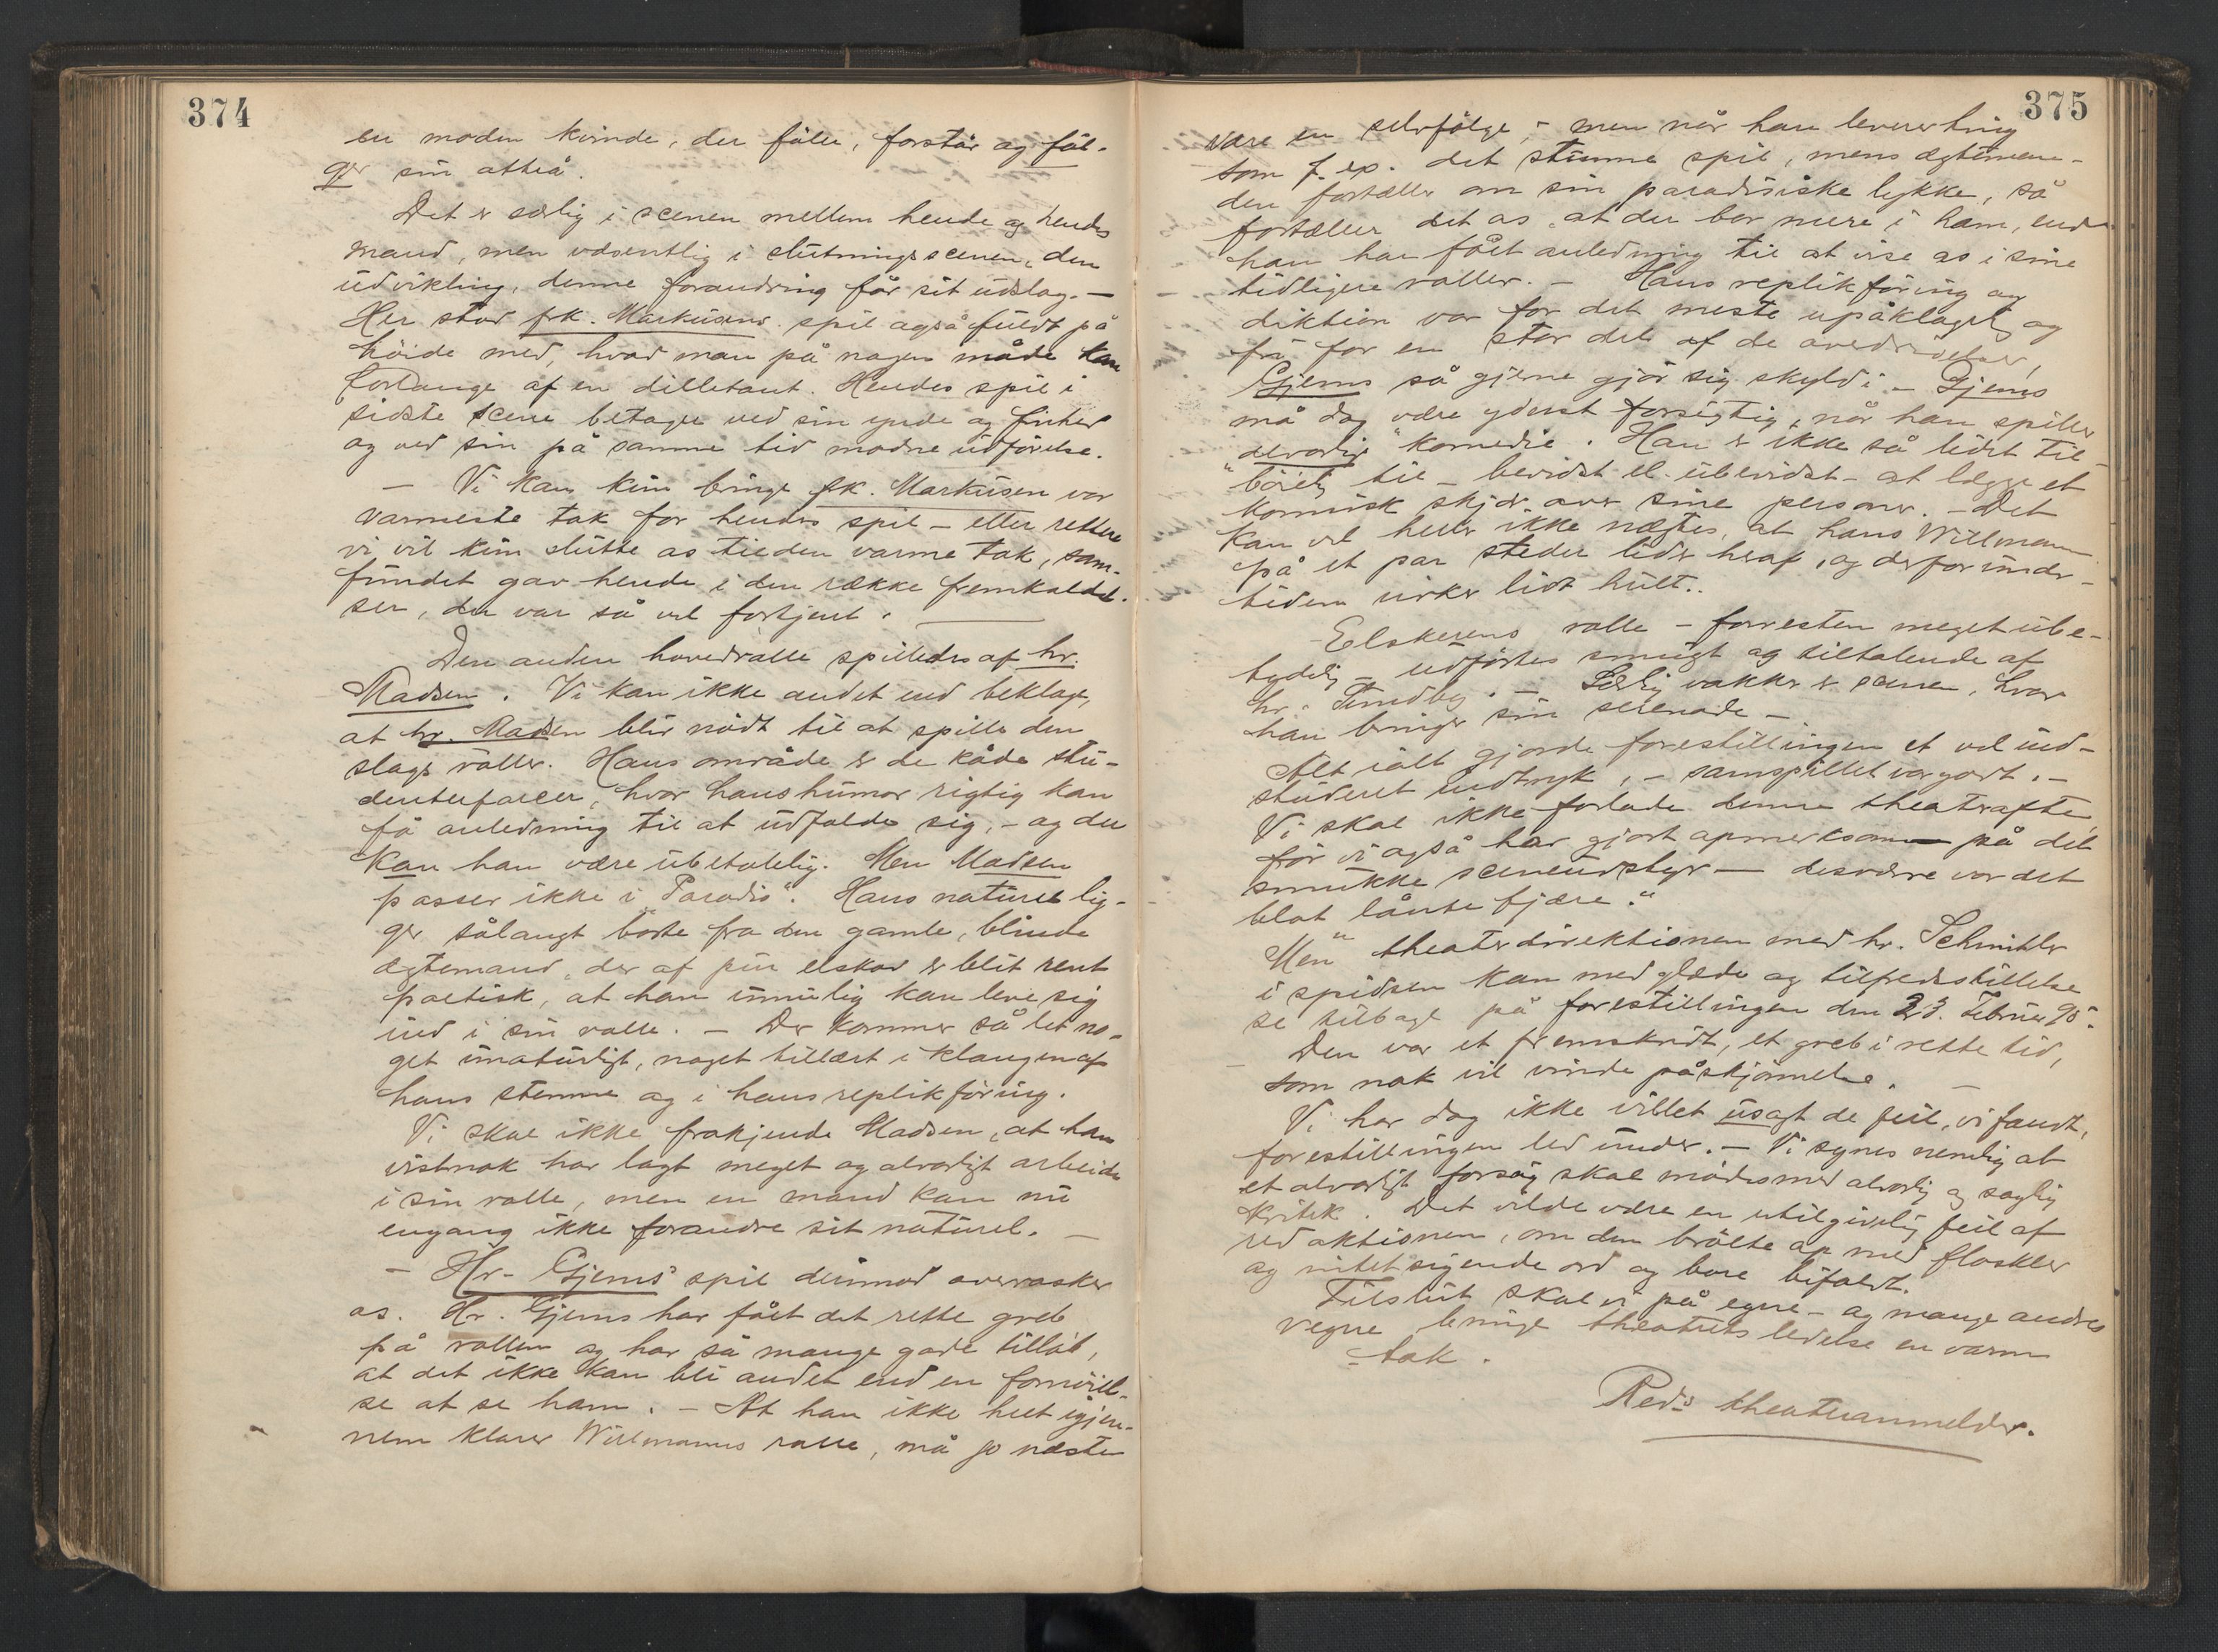 374
en moden kvinde, der föler, forstår og föl-
ger sin attrå.
Det er særlig i scenen mellem hende og hendes
mand, men væsentlig i slutningsscenen, den
udvikling, denne forandring får sit udslag. —
Her stod frk. Markusens spil også fuldt på
höide med, hvad man på nogen måde kan
forlange af en dilletant. Hendes spil i
sidste scene betager ved sin ynde og finhed
og ved sin på samme tid modne udförelse.
— Vi kan kun bringe frk. Markusen vor
varmeste tak for hendes spil — eller rettere
vi vil kun slutte os til den varme tak, sam-
fundet gav hende i den række fremkaldel-
ser, der var så vel fortjent. —
Den anden hovedrolle spilledes af hr.
Madsen. Vi kan ikke andet end beklage,
at hr. Madsen blir nödt til at spille den
slags roller. Hans område er de kåde stu-
denterfarcer, hvor hans humor rigtig kan
få anledning til at udfolde sig, - og der
kan han være ubetalelig. Men Madsen
passer ikke i "Paradis". Hans naturel lig-
ger sålangt borte fra den gamle, blinde
ægtemand, der af pur elskov er blit rent
poetisk, at han umulig kan leve sig
ind i sin rolle. — Der kommer så let no-
get unaturligt, noget tillært i klangen af
hans stemme og i hans replikföring.
Vi skal ikke frakjende Madsen, at han
vistnok har lagt meget og alvorligt arbeide
i sin rolle, men en mand kan nu
engang ikke forandre sit naturel. —
— Hr. Gjems' spil derimod overrasker
os. Hr. Gjems har fået det rette greb
på rollen og har så mange gode tilløb,
at det ikke kan bli andet end en fornöiel-
se at se ham. — At han ikke helt igjen-
nem klarer Willmanns rolle, må jo næsten
375
være en selvfölge, - men når han leverer ting
som f. ex. det stumme spil, mens ægteman-
den fortæller om sin paradisiske lykke, så
fortæller det os, at der bor mere i ham, end
han har fået anledning til at vise os i sine
tidligere roller. — Hans replikföring og
diktion var for det meste upåklagelig og
fri for en stor del af de overdrivelser,
Gjems så gjerne gjör sig skyld i. - Gjems
må dog være yderst forsigtig, når han spiller
"alvorlig" komedie. Han er ikke så lidet til-
böielig til - bevidst el. ubevidst - at lægge et
komisk skjær over sine personer. - Det
kan vel heller ikke nægtes, at hans Willmann
på et par steder lider heraf, og derfor under-
tiden virker lidt hult..
Elskerens rolle - forresten meget ube-
tydelig - udförtes smukt og tiltalende af
hr. Sundby. — Særlig vakker er scenen, hvor
han bringer sin serenade —
Alt ialt gjorde forestillingen et vel ind-
studeret indtryk, - samspillet var godt. -
Vi skal ikke forlade denne theateraften,
för vi også har gjort opmerksom på det
smukke sceneudstyr — desværre var det
blot "lånte fjære."
Men theaterdirektionen med hr. Schmitler
i spidsen kan med glæde og tilfredsstillelse
se tilbage på forestillingen den 23. Februar 95.
Den var et fremskridt, et greb i rette tid,
som nok vil vinde påskjönnelse. —
Vi har dog ikke villet usagt de feil, vi fandt,
forestillingen led under. — Vi synes nemlig at
et alvorligt forsög skal mödes med alvorlig og saglig
kritik. Det vilde være en utilgivelig feil af
redaktionen, om den brölte op med floskler
og intetsigende ord og bare bifaldt.
Tilslut skal vi på egne - og mange andres
vegne bringe theatrets ledelse en varm
tak.
Red's theateranmelder.